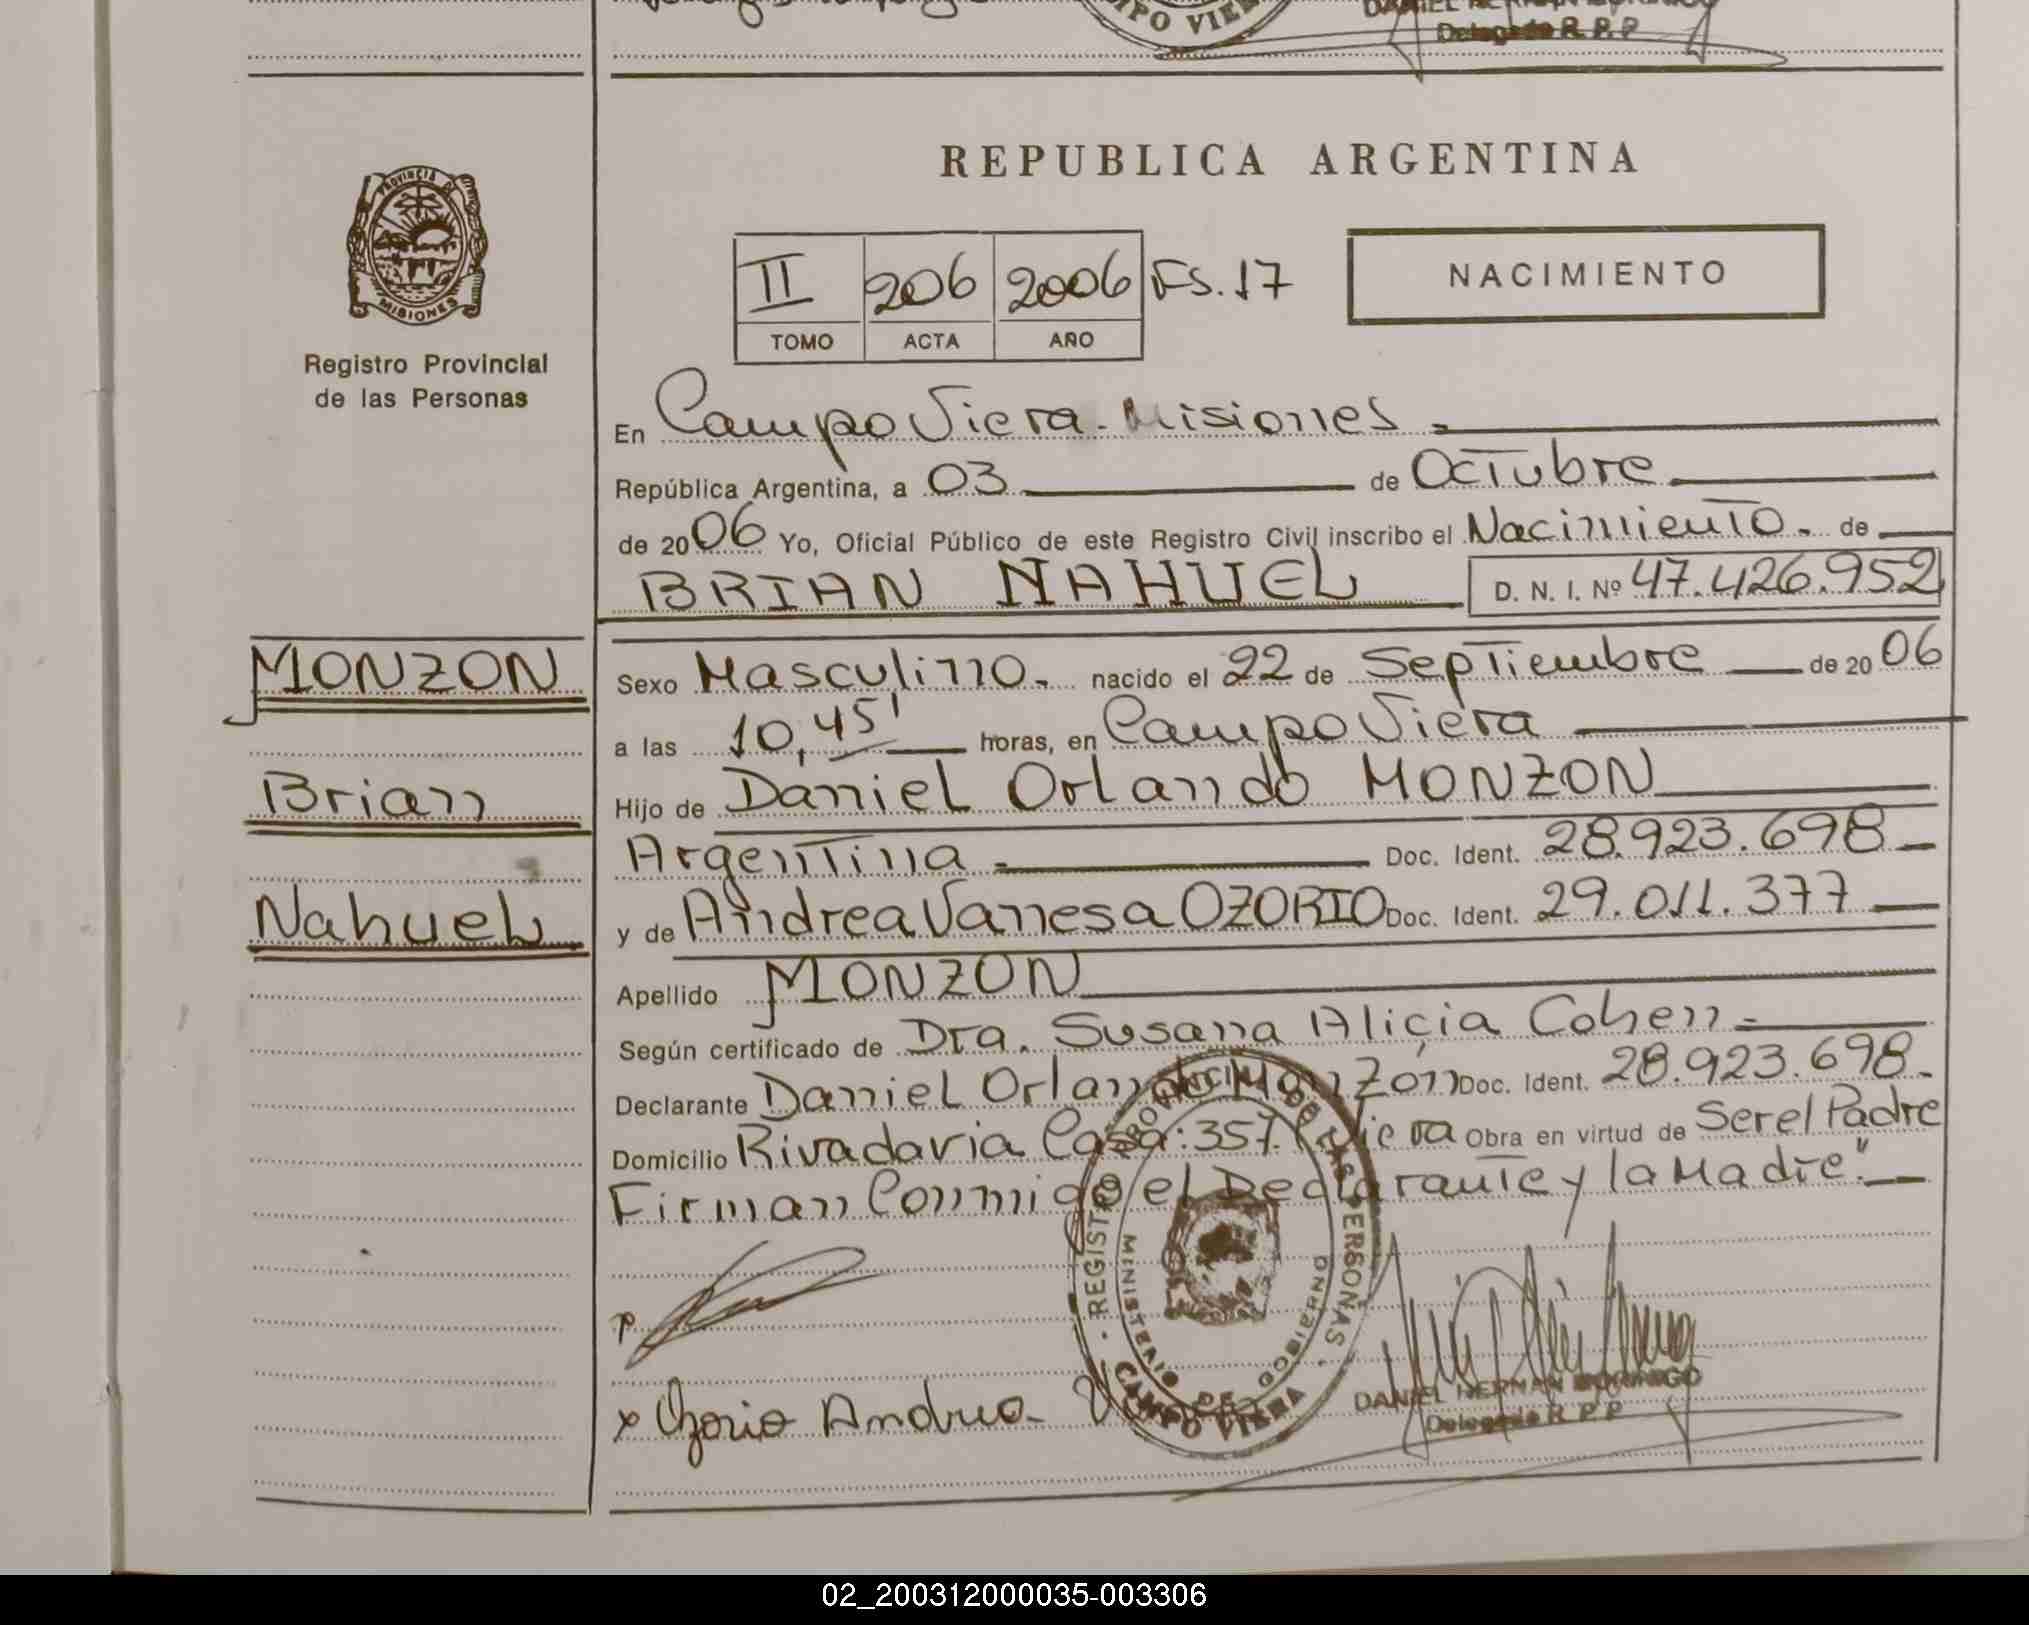 Delegado R. P. P.
PROVINCIA DE
MISIONES
Registro Provincial
de las Personas
REPUBLICA ARGENTINA
II 206 2006 FS. 17
TOMO ACTA AÑO
NACIMIENTO
En Campo Viera - Misiones.
República Argentina, a 03 de Octubre
de 2006 Yo, Oficial Público de este Registro Civil inscribo el Nacimiento. de
BRIAN NAHUEL D. N. I. Nº 47.426.952
MONZON
Sexo Masculino. nacido el 22 de Septiembre de 2006
a las 10,45' horas, en Campo Viera
Brian
Hijo de Daniel Orlando MONZON
Argentina Doc. Ident. 28.923.698
Nahuel
y de Andrea Vanesa OZORIO Doc. Ident. 29.011.377
Apellido MONZON
Según certificado de Dra. Susana Alicia Cohen
Declarante Daniel Orlando Monzon Doc. Ident. 28.923.698
Domicilio Rivadavia Casa: 357. Viera Obra en virtud de Ser el Padre
Firman Conmigo el Declarante y la Madre".
REGISTRO PROVINCIAL DE LAS PERSONAS
MINISTERIO DE GOBIERNO
CAMPO VIERA
x Ozorio Andrea
DANIEL HERNAN
Delegado R. P. P.
02_200312000035-003306